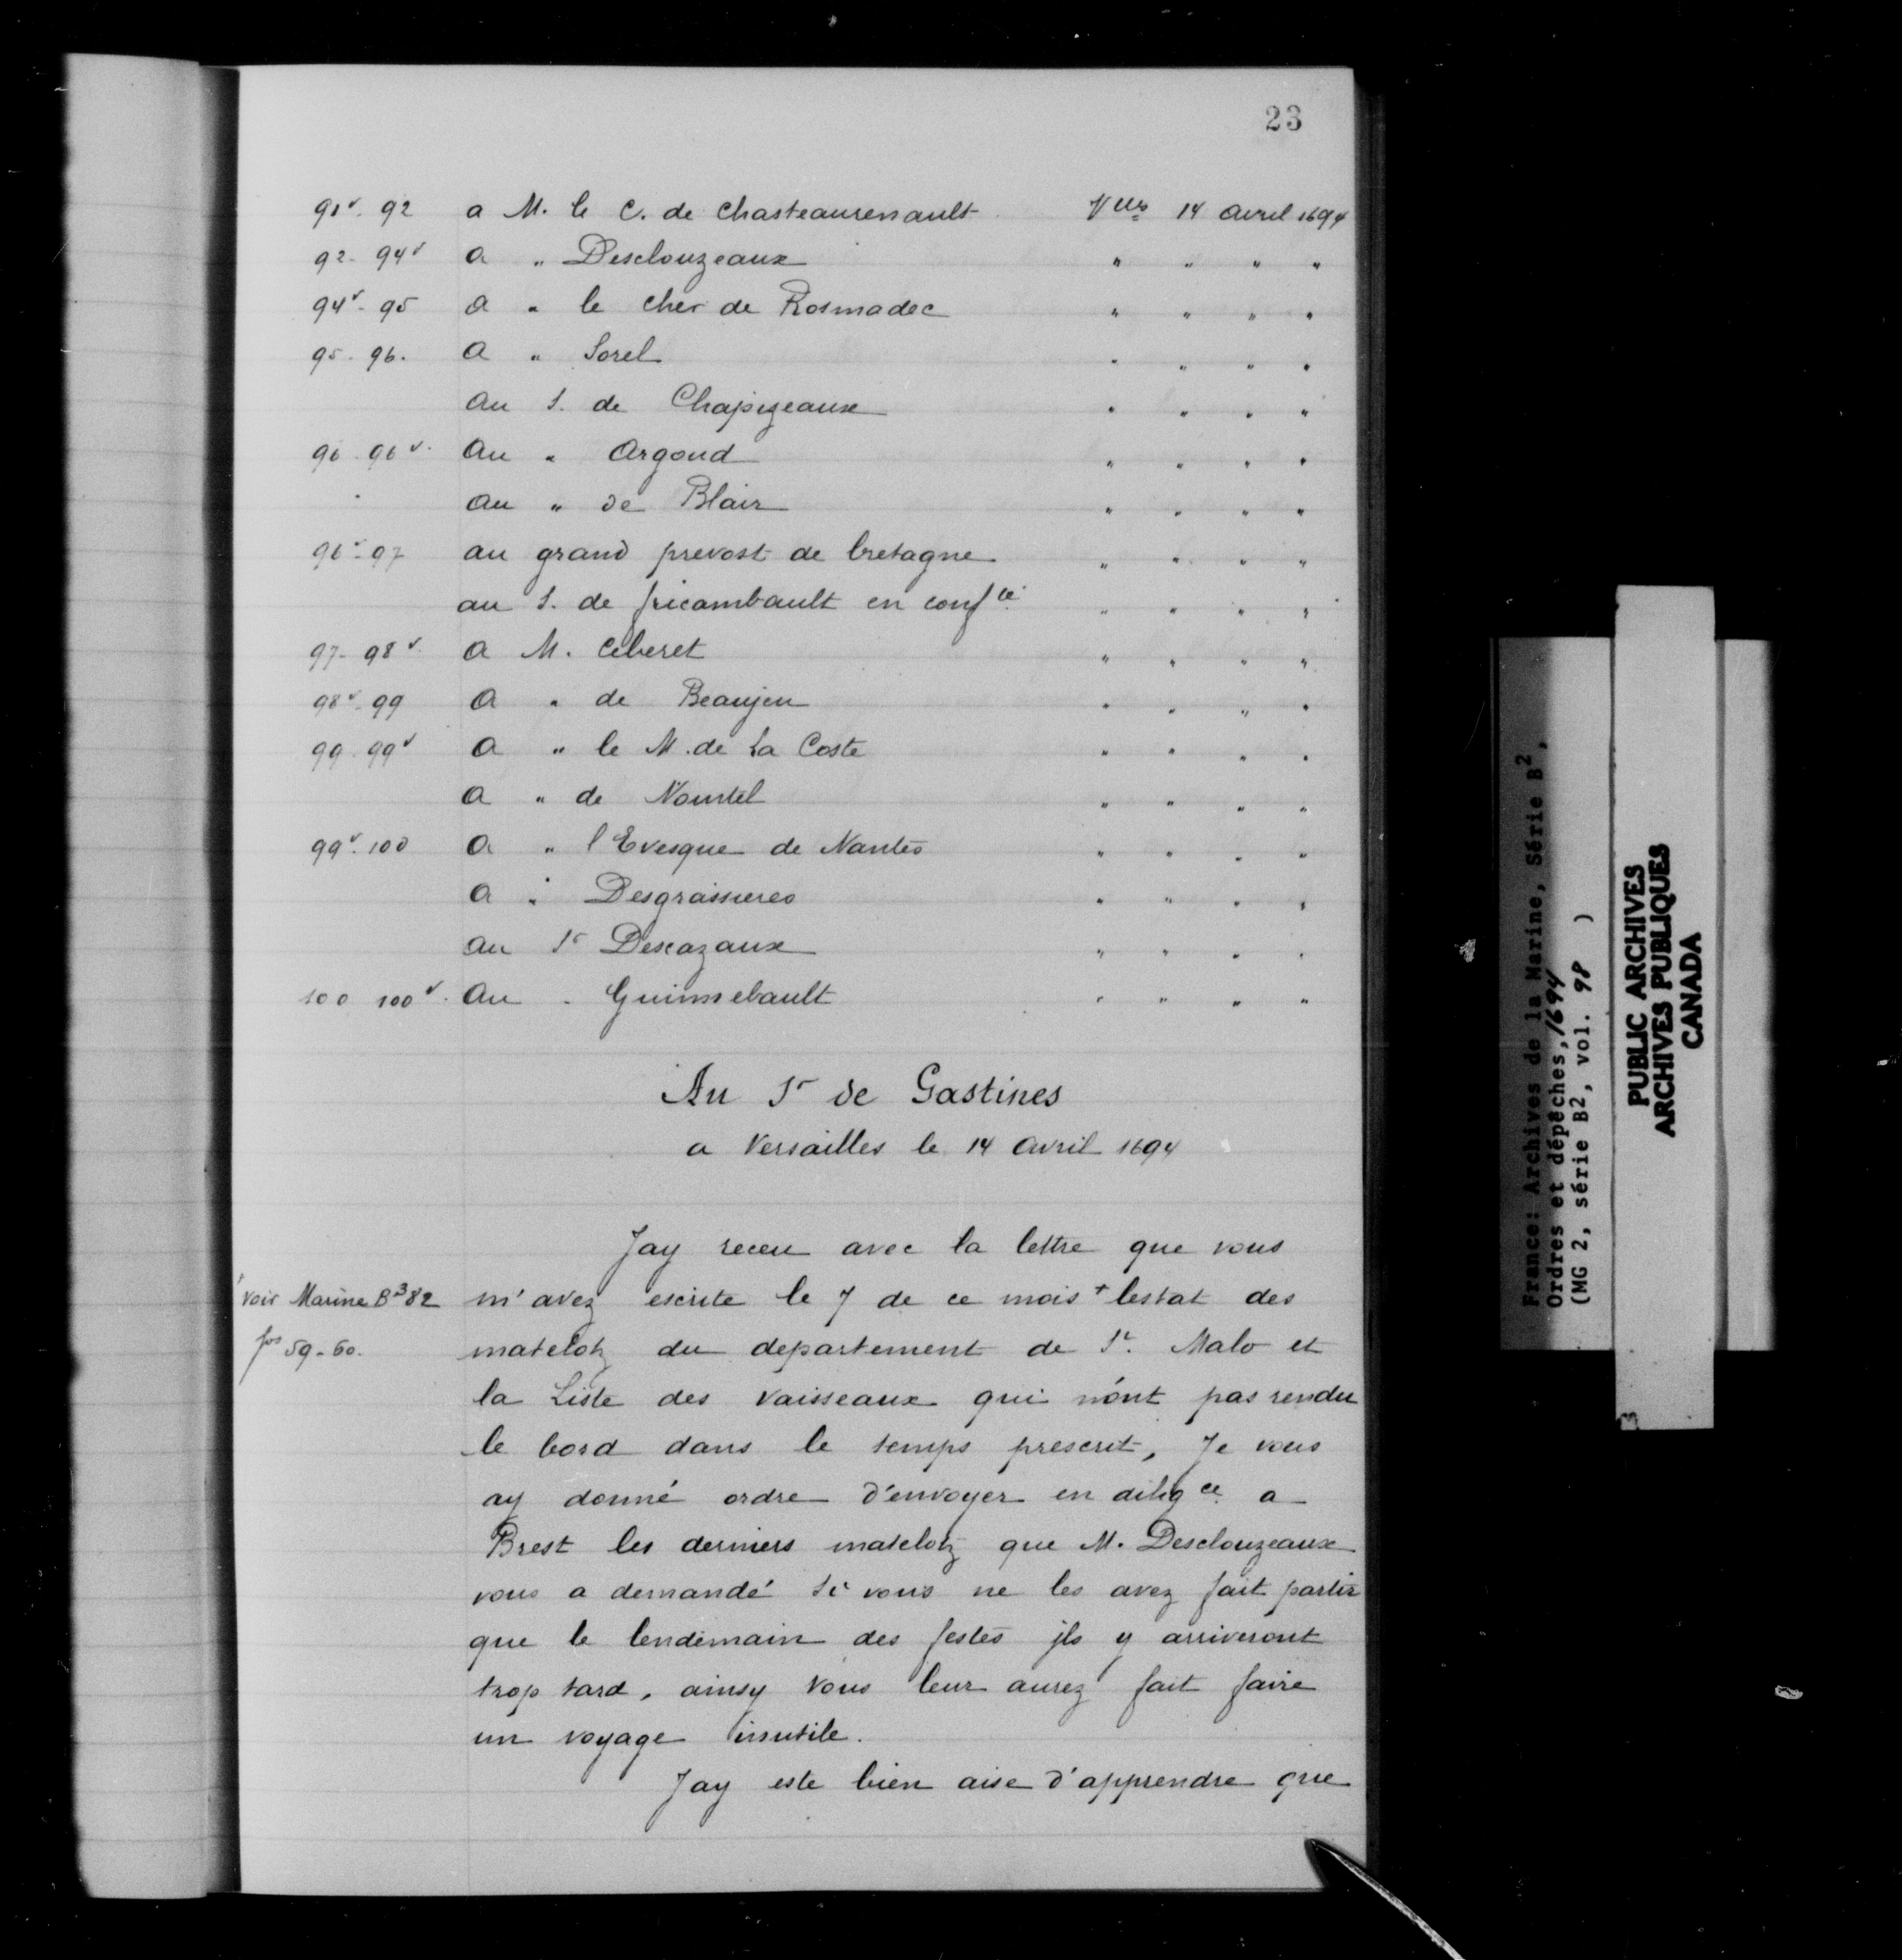 23
91v. 92 a M. le C. de Chasteaurenault Vlles 14 avril 1694
92 - 94v a " Desclouzeaux " " " "
94v - 95 a " le cher de Rosmadec " " " "
95 - 96. a " Sorel " " " "
au S. de Chapizeaux " " " "
96 - 96v. au " Argoud " " " "
" au " de Blair " " " "
96v - 97 au grand prevost de bretagne " " " "
au S. de fricambault en confce " " " "
97 - 98v. a M. Ceberet " " " "
98v - 99 a " de Beaujeu " " " "
99 - 99v a " le M. de La Coste " " " "
a " de Nointel " " " "
99v. 100 a " l'Evesque de Nantes " " " "
a " Desgrassieres " " " "
au Sr Descazaux " " " "
100 100v. au " Guimebault " " " "
Au Sr de Gastines
a Versailles le 14 avril 1694
Jay receu avec la lettre que vous
voir Marine B3 82 m'avez escrite le 7 de ce mois + lestat des
fos 59-60. matelotz du departement de St. Malo et
la Liste des vaisseaux qui n'ont pas rendu
le bord dans le temps prescrit, Je vous
ay donné ordre d'envoyer en diligce a
Brest les derniers matelotz que M. Desclouzeaux
vous a demandé si vous ne les avez fait partir
que le lendemain des festes jls y arriveront
trop tard, ainsy vous leur aurez fait faire
un voyage inutile.
Jay este bien aise d'apprendre que
France: Archives de la Marine, Série B2,
Ordres et dépêches, 1694
(MG 2, série B2, vol. 98 )
PUBLIC ARCHIVES
ARCHIVES PUBLIQUES
CANADA
3